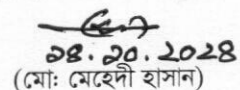 ১৪.১০.২০২৪
(মোঃ মেহেদী হাসান)